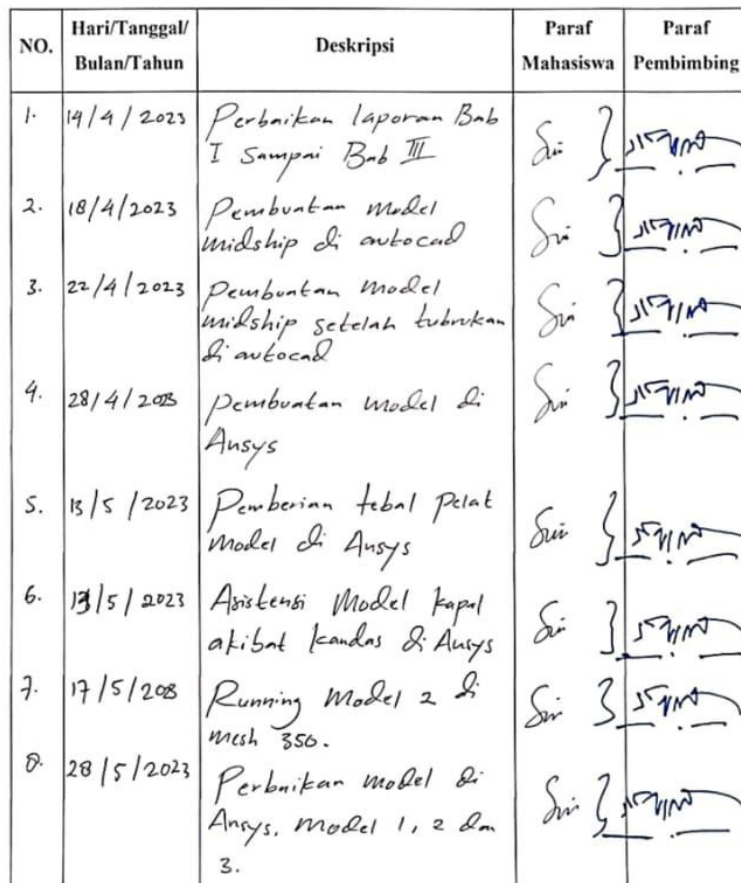 NO. Hari/Tanggal/ Deskripsi Paraf Paraf
Bulan/Tahun Mahasiswa Pembimbing
1. 14/4/2023 Perbaikan laporan Bab
I Sampai Bab III
2. 18/4/2023 Pembuatan model
midship di autocad
3. 22/4/2023 Pembuatan model
midship setelah tubrukan
di autocad
4. 28/4/2023 Pembuatan model di
Ansys
5. 13/5/2023 Pemberian tebal pelat
model di Ansys
6. 13/5/2023 Asistensi Model kapal
akibat kandas di Ansys
7. 17/5/203 Running Model 2 di
mesh 350.
8. 28/5/2023 Perbaikan model di
Ansys. Model 1, 2 dan
3.